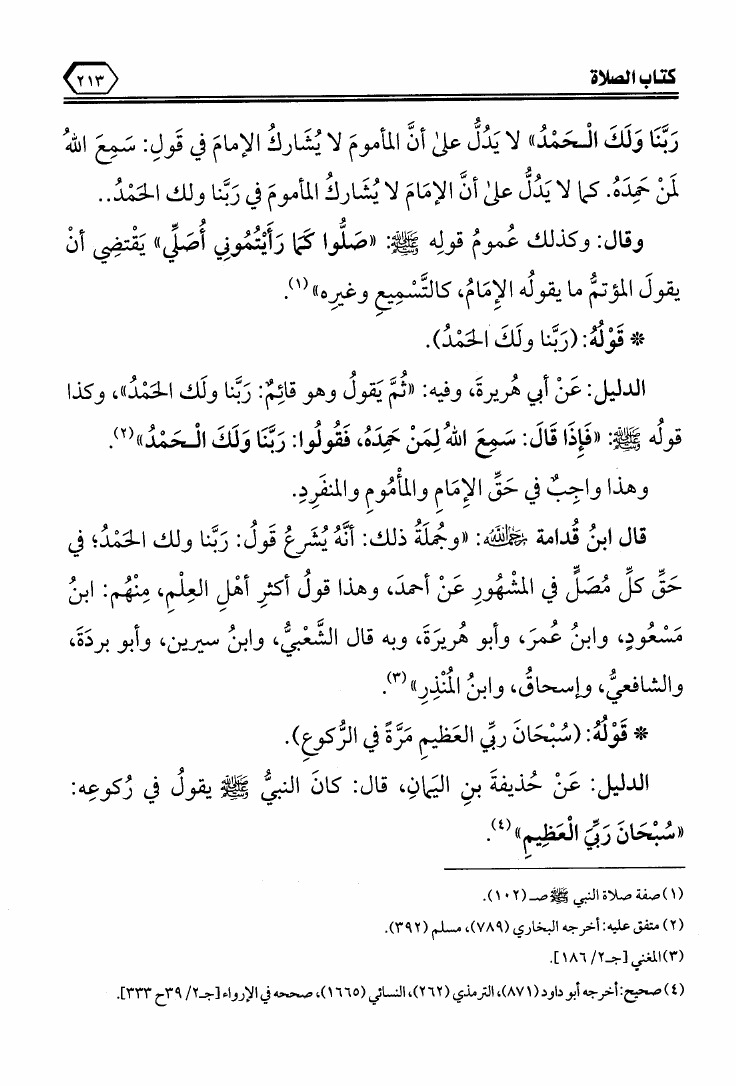 كتاب الصلاة
٢١٣
رَبَّنَا وَلَكَ الْحَمْدُ» لا يَدُلُّ على أنَّ المأمومَ لا يُشَاركُ الإمامَ في قَولِ: سَمِعَ اللهُ
لمَنْ حَمِدَهُ. كما لا يَدُلُّ على أنَّ الإمَامَ لا يُشَاركُ المأمومَ في رَبَّنا ولك الحَمْدُ..
وقال: وكذلك عُمومُ قولِه ﷺ: «صَلُّوا كَمَا رَأَيْتُمُوني أُصَلِّي» يَقْتَضِي أنْ
يقولَ المؤتمُّ ما يقولُه الإمَامُ، كالتَّسْمِيعِ وغيرِه»(١).
* قَوْلُهُ: (رَبَّنا ولَكَ الحَمْدُ).
الدليل: عَنْ أبي هُريرةَ، وفيه: «ثُمَّ يَقولُ وهو قائِمٌ: رَبَّنا ولَك الحَمْدُ»، وكذا
قولُه ﷺ: «فَإِذَا قَالَ: سَمِعَ اللهُ لِمَنْ حَمِدَهُ، فَقُولُوا: رَبَّنَا وَلَكَ الْحَمْدُ»(٢).
وهذا واجِبٌ في حَقِّ الإمَامِ والمأْمُومِ والمنفَرِدِ.
قال ابنُ قُدامة رَحِمَهُ اللهُ: «وجُملَةُ ذلك: أنَّهُ يُشرعُ قولُ: رَبَّنا ولك الحَمْدُ؛ في
حَقِّ كلِّ مُصَلٍّ في المشْهُورِ عَنْ أحمدَ، وهذا قولُ أكثرِ أهْلِ العِلْمِ، مِنْهُم: ابنُ
مَسْعُودٍ، وابنُ عُمرَ، وأبو هُريرَةَ، وبه قال الشَّعْبيُّ، وابنُ سيرين، وأبو بردَةَ،
والشافعيُّ، وإسحاقُ، وابنُ المُنْذِرِ»(٣).
* قَوْلُهُ: (سُبْحَانَ ربِّي العَظيمِ مَرَّةً في الرُّكوعِ).
الدليل: عَنْ حُذيفةَ بنِ اليَمانِ، قال: كانَ النبيُّ ﷺ يقولُ في رُكوعِه:
«سُبْحَانَ رَبِّيَ الْعَظِيمِ»(٤).
(١) صفة صلاة النبي ﷺ صـ (١٠٢).
(٢) متفق عليه: أخرجه البخاري (٧٨٩)، مسلم (٣٩٢).
(٣) المغني [جـ٢/ ١٨٦].
(٤) صحيح: أخرجه أبو داود (٨٧١)، الترمذي (٢٦٢)، النسائي (١٦٦٥)، صححه في الإرواء [جـ٢/ ٣٩ح ٣٣٣].